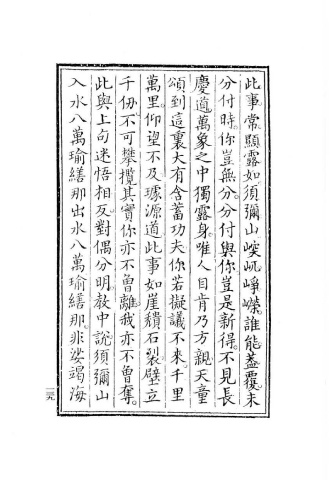 此事常顯露如須彌山崒屼崢嶸誰能蓋覆未
分付時你豈無分分付與你豈是新得不見長
慶道萬象之中獨露身唯人自肯乃方親天童
頌到這裏大有含蓄功夫你若擬議不來千里
萬里仰望不及璩源道此事如崖頹石裂壁立
千仞不可攀攬其實你亦不曾離我亦不曾奪
此與上句迷悟相反對偶分明教中說須彌山
入水八萬瑜繕那出水八萬瑜繕那非娑竭海